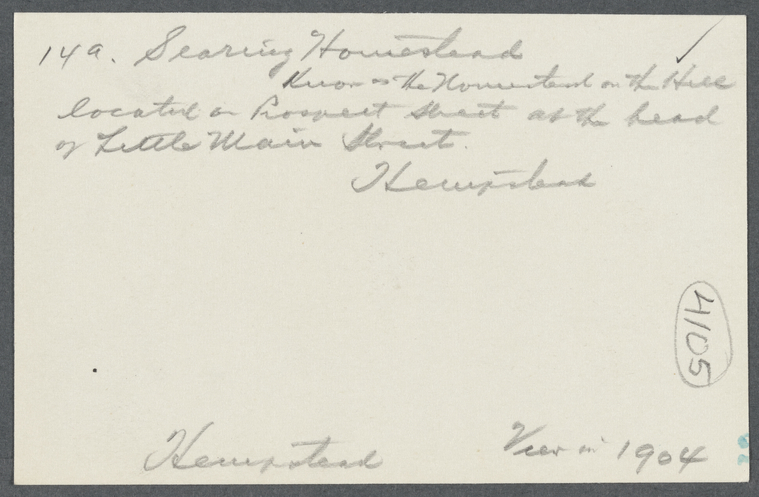 14a. Searing Homestead
Know as the Homestead on the Hill
located on Prospect Street at the head
of Little Main Street.
Hempstead
4105
Hempstead View in 1904